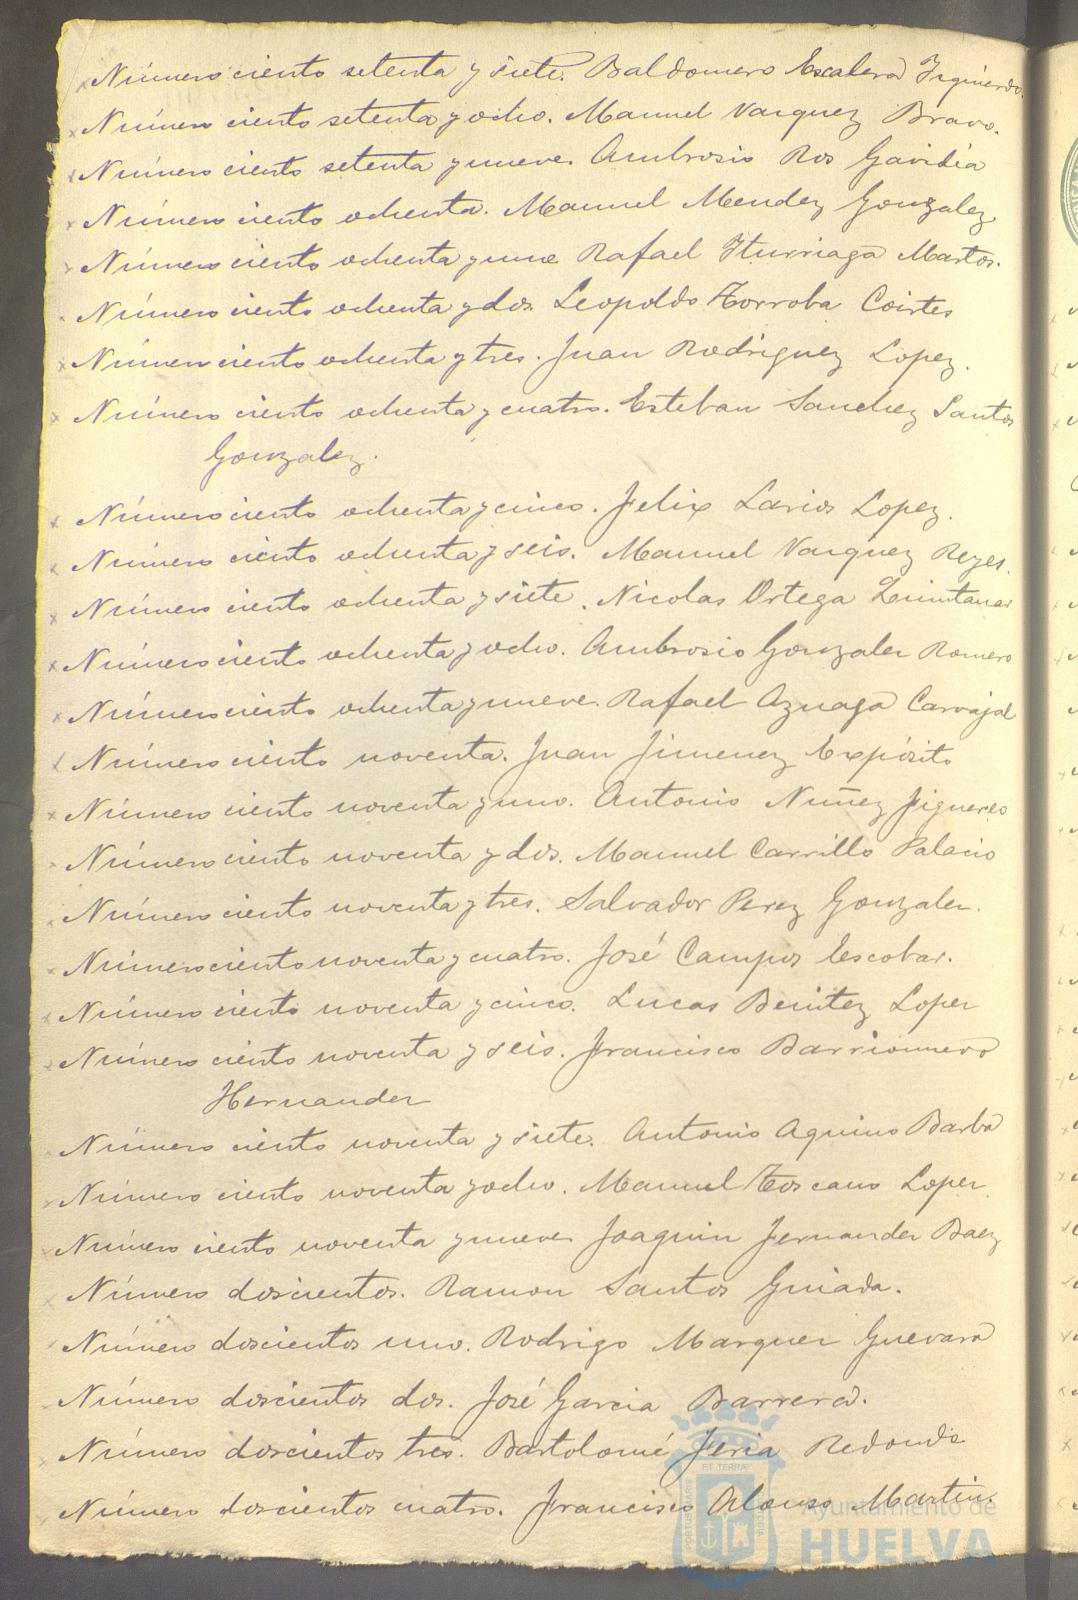 Número ciento setenta y siete. Baldomero Escalera Izquierdo.
Número ciento setenta y ocho. Manuel Vazquez Bravo.
Número ciento setenta y nueve. Ambrosio Ros Gavidia
Número ciento ochenta. Manuel Mendez Gonzalez
Número ciento ochenta y uno Rafael Iturriaga Martos.
Número ciento ochenta y dos Leopoldo Torroba Cortes
Número ciento ochenta y tres. Juan Rodriguez Lopez.
Número ciento ochenta y cuatro. Esteban Sanchez Santos
Gonzalez.
Número ciento ochenta y cinco. Felix Larios Lopez.
Número ciento ochenta y seis. Manuel Vazquez Reyes.
Número ciento ochenta y siete. Nicolas Ortega Quintanar
Número ciento ochenta y ocho. Ambrosio Gonzalez Romero
Número ciento ochenta y nueve. Rafael Aznaga Carvajal
Número ciento noventa. Juan Jimenez Expósito
Número ciento noventa y uno. Antonio Nuñez Figueres
Número ciento noventa y dos. Manuel Carrillo Palacio
Número ciento noventa y tres. Salvador Perez Gonzalez.
Número ciento noventa y cuatro. José Campos Escobar.
Número ciento noventa y cinco. Lucas Benitez Lopez
Número ciento noventa y seis. Francisco Barrionuevo
Hernandez
Número ciento noventa y siete. Antonio Aquino Barba
Número ciento noventa y ocho. Manuel Toscano Lopez
Número ciento noventa y nueve Joaquin Fernandez Baez
Número doscientos. Ramon Santos Guiada.
Número doscientos uno. Rodrigo Marquez Guevara
Número doscientos dos. José Garcia Barrera.
Número doscientos tres. Bartolomé Feria Redondo
Número doscientos cuatro. Francisco Alonso Martin.
Ayuntamiento de
HUELVA